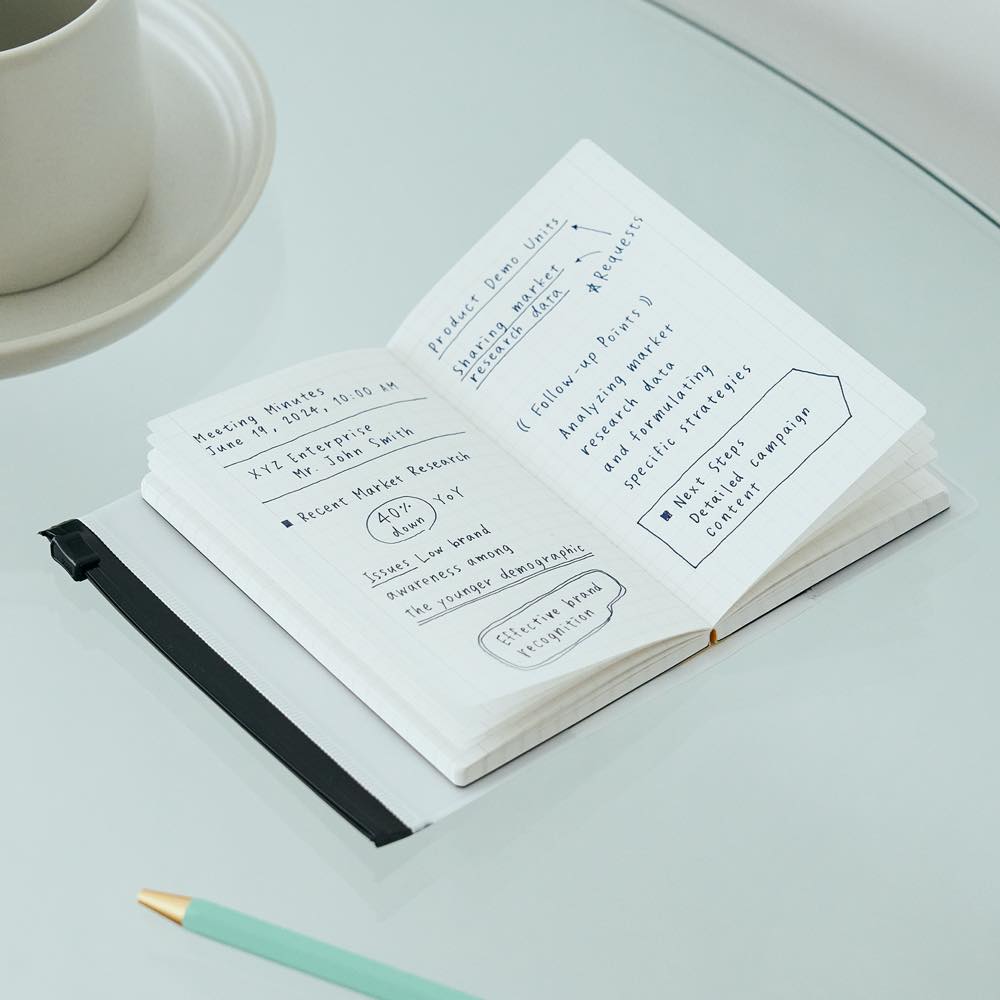 Meeting Minutes
June 19, 2024, 10:00 AM
XYZ Enterprise
Mr. John Smith
■ Recent Market Research
40% down YoY
Issues Low brand
awareness among
the younger demographic
Effective brand
recognition
Product Demo Units
Sharing market
research data
*Requests
(( Follow-up Points ))
Analyzing market
research data
and formulating
specific strategies
■ Next Steps
Detailed campaign
content